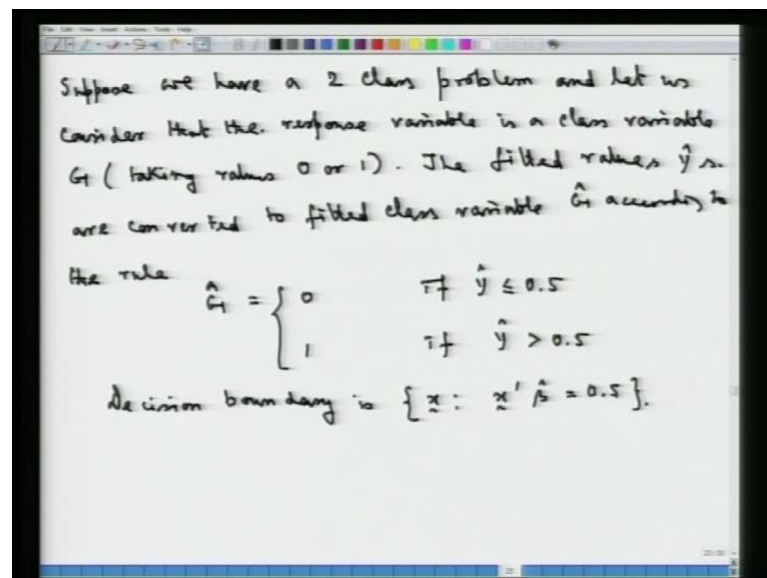 File Edit View Insert Actions Tools Help
Suppose we have a 2 class problem and let us
consider that the. response variable is a class variable
G (taking values 0 or 1). The fitted values ŷ s.
are converted to fitted class variable Ĝ according to
the rule
Ĝ = { 0 if ŷ ≤ 0.5
1 if ŷ > 0.5
Decision boundary is { x : x' β̂ = 0.5 }.